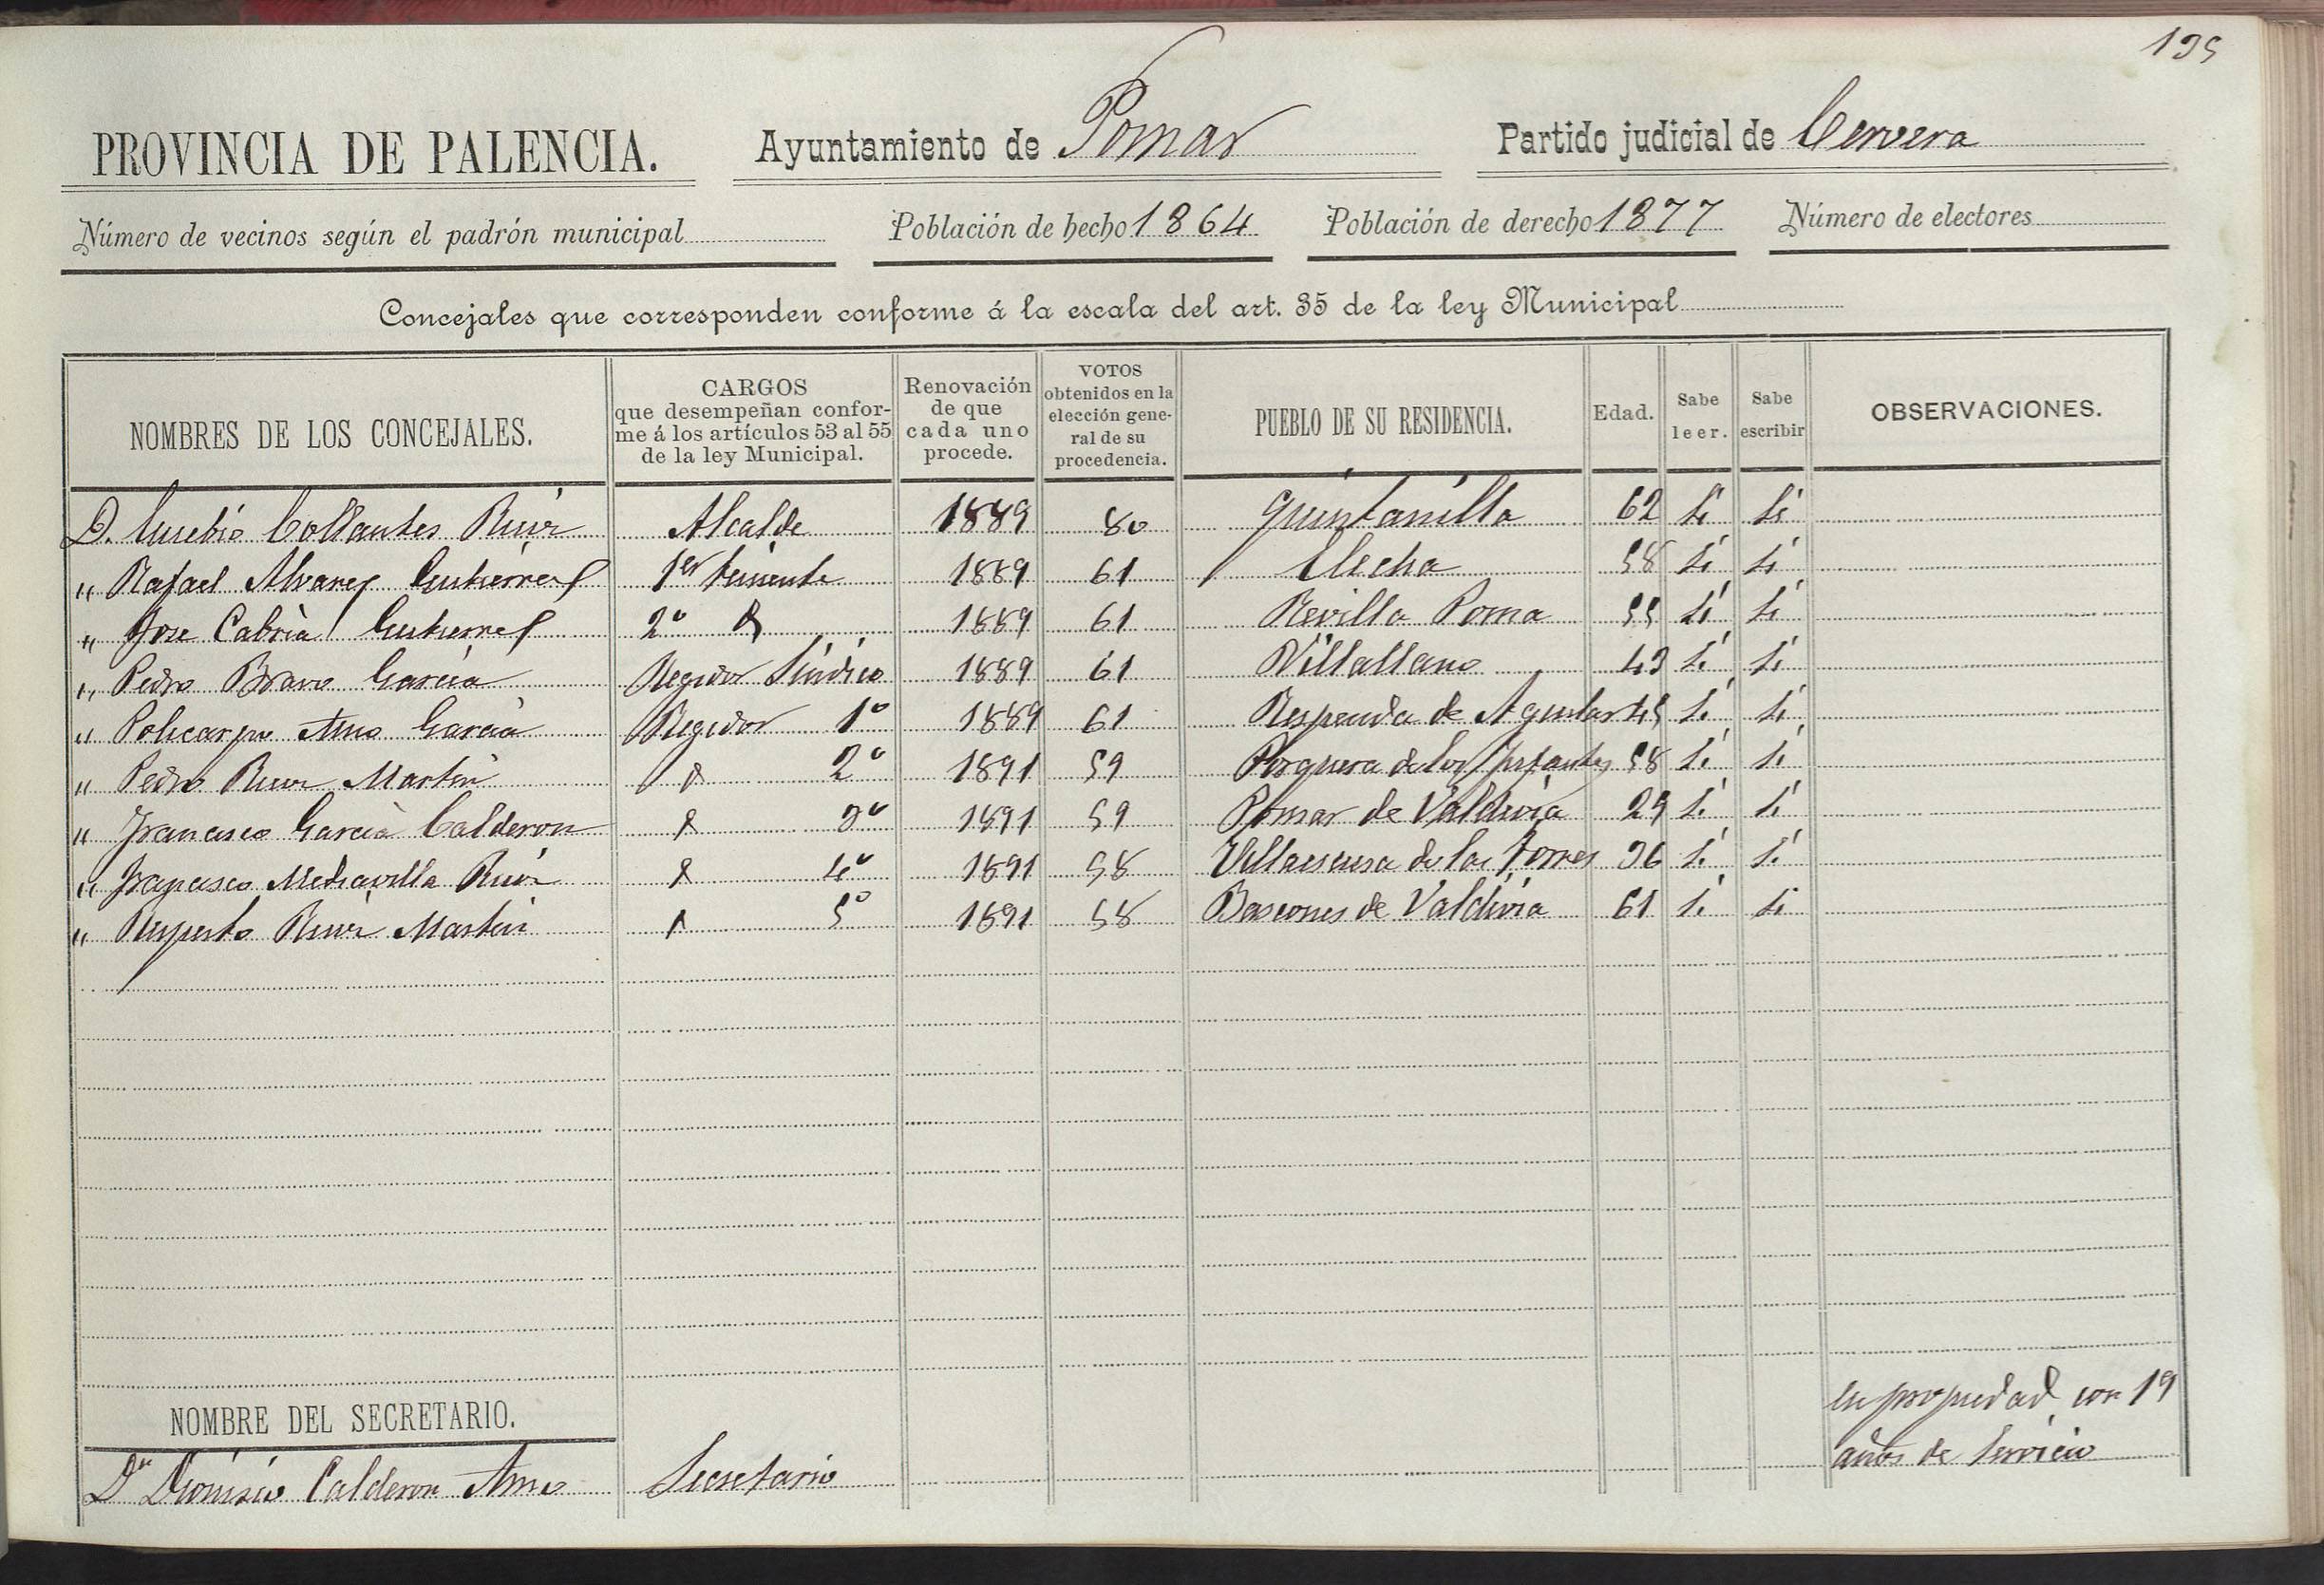 135
PROVINCIA DE PALENCIA. Ayuntamiento de Pomar Partido judicial de Cervera
Número de vecinos según el padrón municipal Población de hecho 1864 Población de derecho 1877 Número de electores
Concejales que corresponden conforme á la escala del art. 35 de la ley Municipal
NOMBRES DE LOS CONCEJALES. CARGOS que desempeñan confor-me á los artículos 53 al 55 de la ley Municipal. Renovación de que cada uno procede. VOTOS obtenidos en la elección gene-ral de su procedencia. PUEBLO DE SU RESIDENCIA. Edad. Sabe leer. Sabe escribir OBSERVACIONES.
D. Eusebio Collantes Ruiz Alcalde 1889 80 Quintanilla 62 si si
" Rafael Alvarez Gutierrez 1er teniente 1889 61 Elecha 58 si si
" Jose Cabria Gutierrez 2º 1889 61 Revilla Poma 55 si si
" Pedro Bravo García Regidor Síndico 1889 61 Villallano 43 si si
" Policarpo Amo García Regidor 1º 1889 61 Respenda de Aguilar 45 si si
" Pedro Ruiz Martin 2º 1891 59 Porquera de los Infantes 58 si si
" Francisco García Calderon 3º 1891 59 Pomar de Valdivia 29 si si
" Francisco Mediavilla Ruiz 4º 1891 58 Villaescusa de las Torres 36 si si
" Ruperto Ruiz Martin 5º 1891 58 Bascones de Valdivia 61 si si
NOMBRE DEL SECRETARIO.
Dn Dionisio Calderon Amo Secretario en propiedad con 19
años de servicio